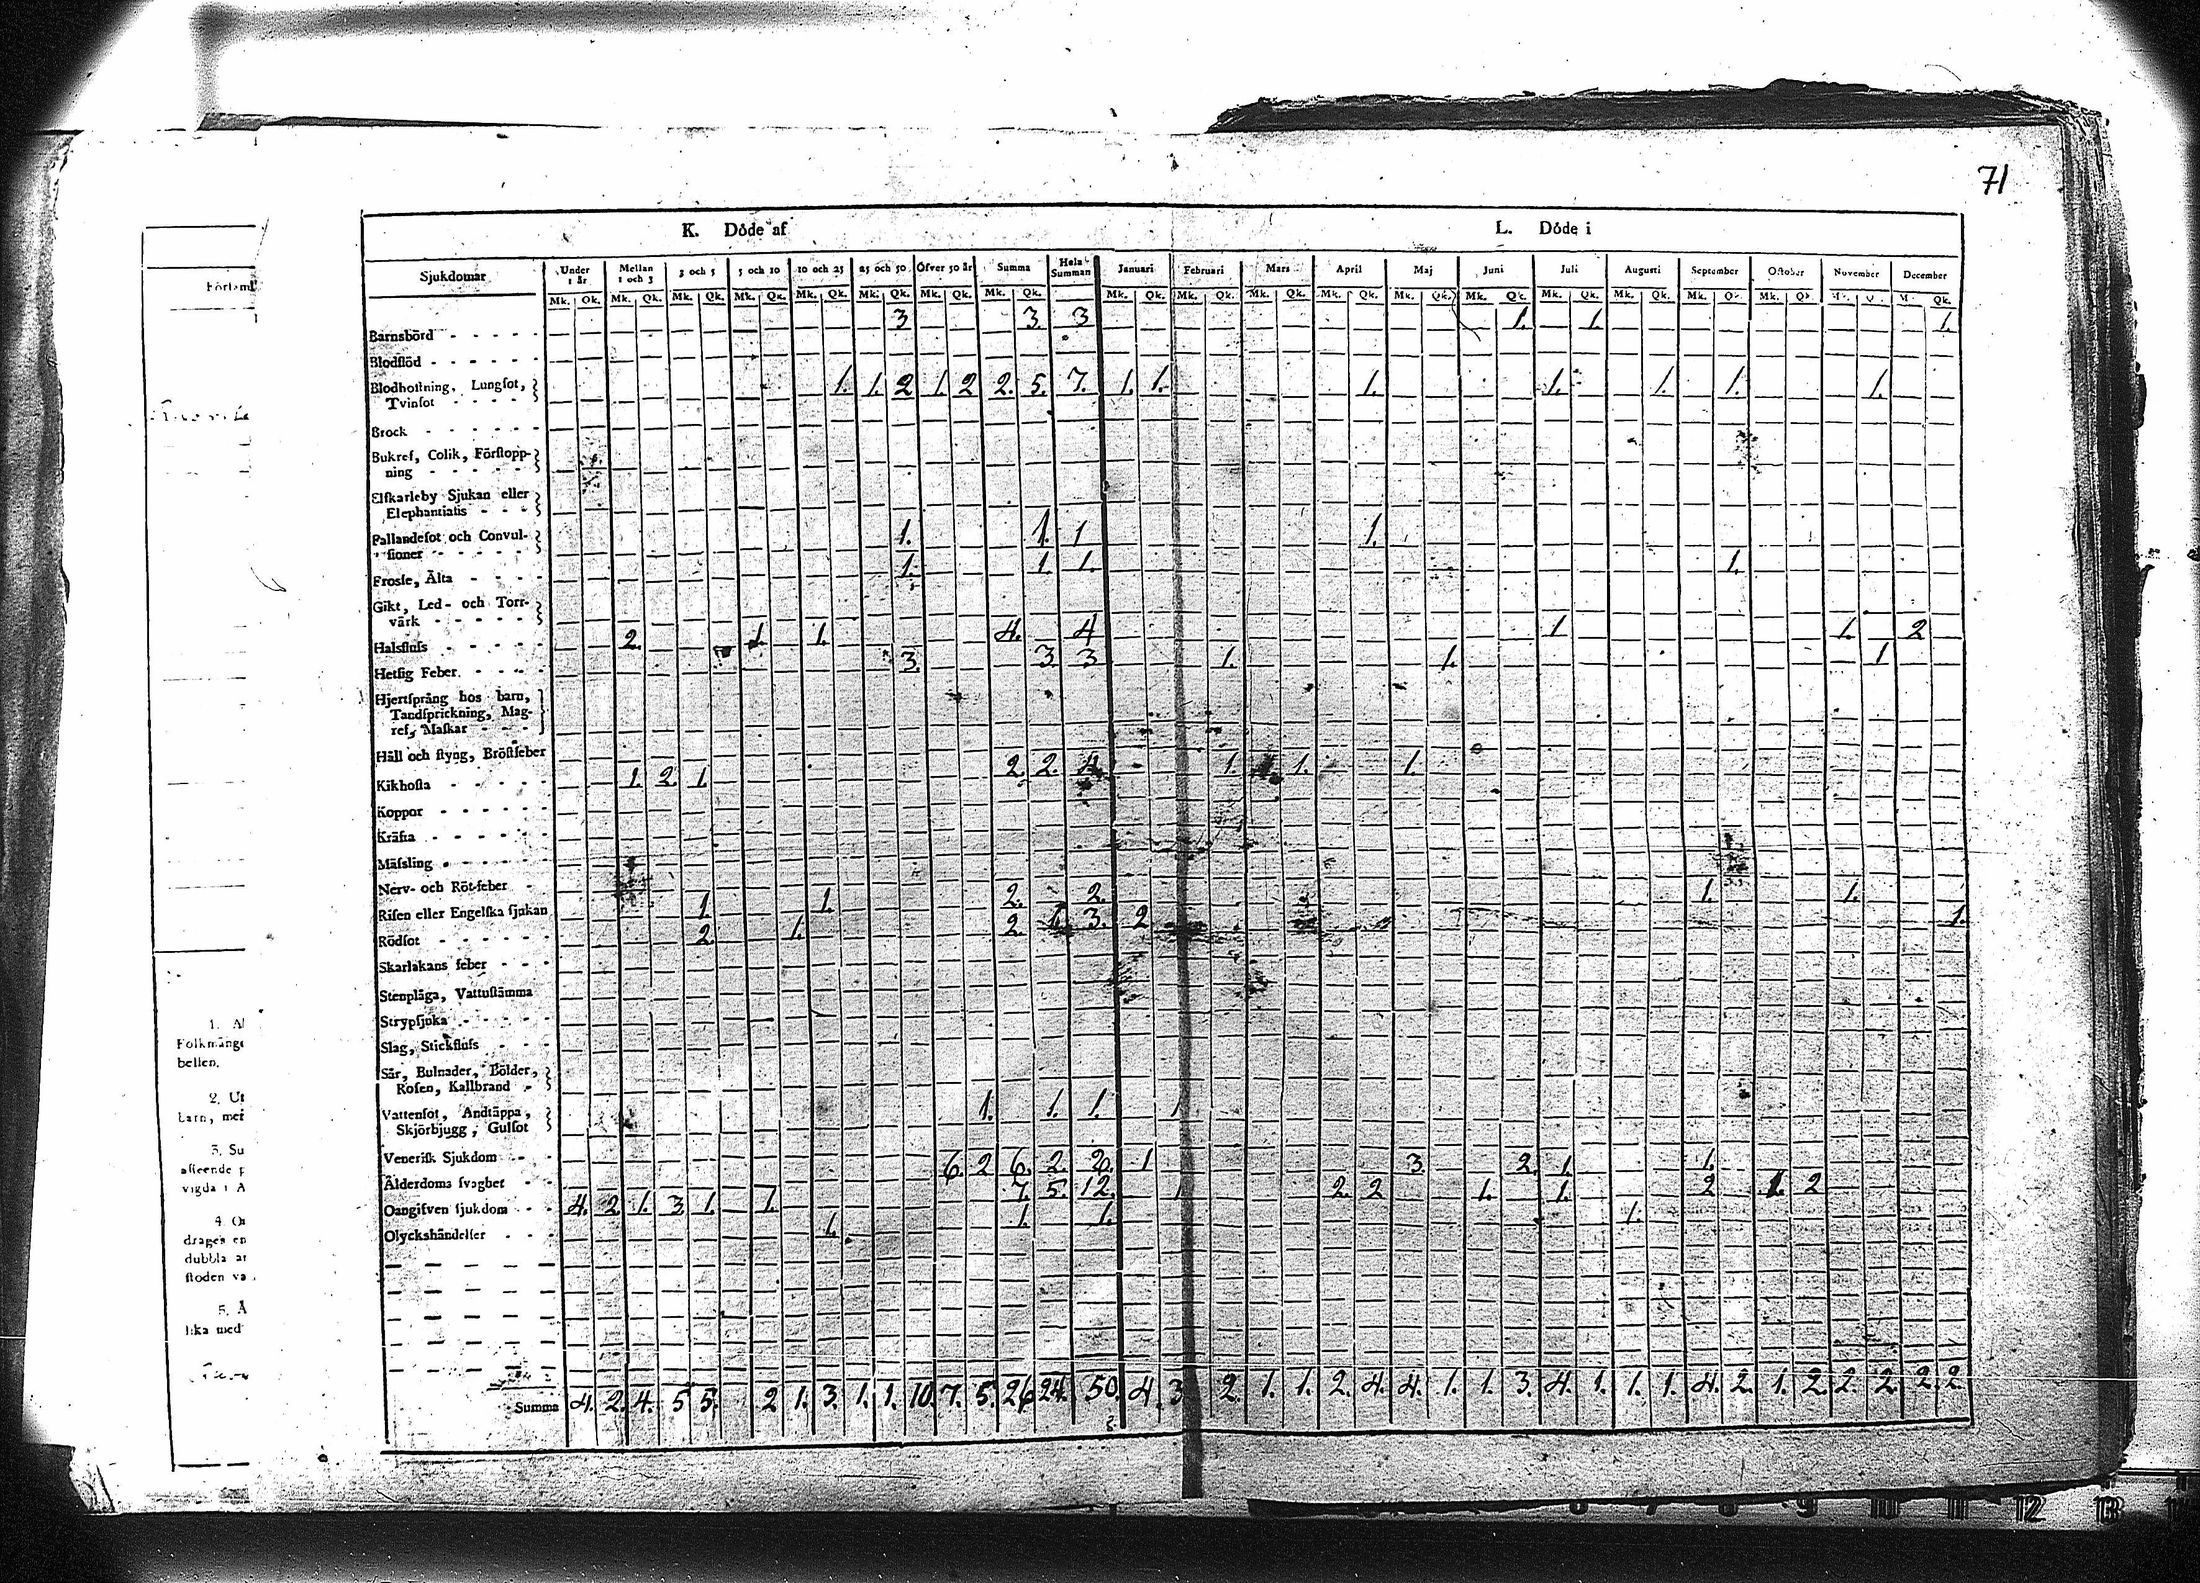 71
K. Döde af L. Döde i
Sjukdomar Under 1 år Mellan 1 och 3 3 och 5 5 och 10 10 och 25 25 och 50 Öfver 50 år Summa Hela Summan Januari Februari Mars April Maj Juni Juli Augusti September October November December
Mk. Qk. Mk. Qk. Mk. Qk. Mk. Qk. Mk. Qk. Mk. Qk. Mk. Qk. Mk. Qk. Mk. Qk. Mk. Qk. Mk. Qk. Mk. Qk. Mk. Qk. Mk. Qk. Mk. Qk. Mk. Qk. Mk. Qk. Mk. Qk. Qk.
Barnsbörd 3 3. 3 1. 1. 1.
Blodflöd
Blodhoſtning, Lungſot, 1. 1. 2 1. 2 2. 5. 7. 1. 1. 1. 1. 1. 1. 1.
Tvinſot
Brock
Bukref, Colik, Förſtopp-
ning
Elſkarleby Sjukan eller
Elephantiaſis
Fallandeſot och Convul- 1. 1. 1 1.
ſioner
Frosſe, Älta 1. 1. 1. 1.
Gikt, Led- och Torr-
värk
Halsfluſs 2. 1. 1. 4. 4 1 1. 2
Hetſig Feber 3. 3 3 1. 1. 1
Hjertſprång hos barn,
Tandſprickning, Mag-
ref, Maſkar
Håll och ſtyng, Bröſtfeber
Kikhoſta 1. 2. 1. 2. 2. 4 1. 1. 1.
Koppor
Kräfta
Mäſsling
Nerv- och Röt-feber
Riſen eller Engelſka ſjukan 1. 1. 2. 2. 1. 1.
Rödſot 2. 1. 2. 1. 3. 2 1.
Skarlakans feber
Stenplåga, Vattuſtämma
Strypſjuka
Slag, Stickfluſs
Sår, Bulnader, Bölder,
Roſen, Kallbrand
Vattenſot, Andtäppa, 1. 1. 1. 1
Skjörbjugg, Gulſot
Veneriſk Sjukdom
Ålderdoms ſvaghet 6. 2 6. 2. 1 3 2. 1. 1.
Oangifven ſjukdom 4. 2. 1. 3 1. 1. 7. 5. 12. 1 2. 2 1. 1. 2 1. 2
Olyckshändelſer 1. 1. 1. 1.
Summa 4. 2. 4. 5 5. 2 1. 3. 1. 1. 10. 7. 5. 26 24. 50. 4. 3 2. 1. 1. 2. 4. 4. 1. 1. 3. 4. 1. 1. 1. 4. 2. 1. 2. 2. 2. 2. 2.
Folkmänge
bellen.
barn,
3. Su
vigda i A
drages en
ſtoden va
lika med
8 9 10 11 12 13